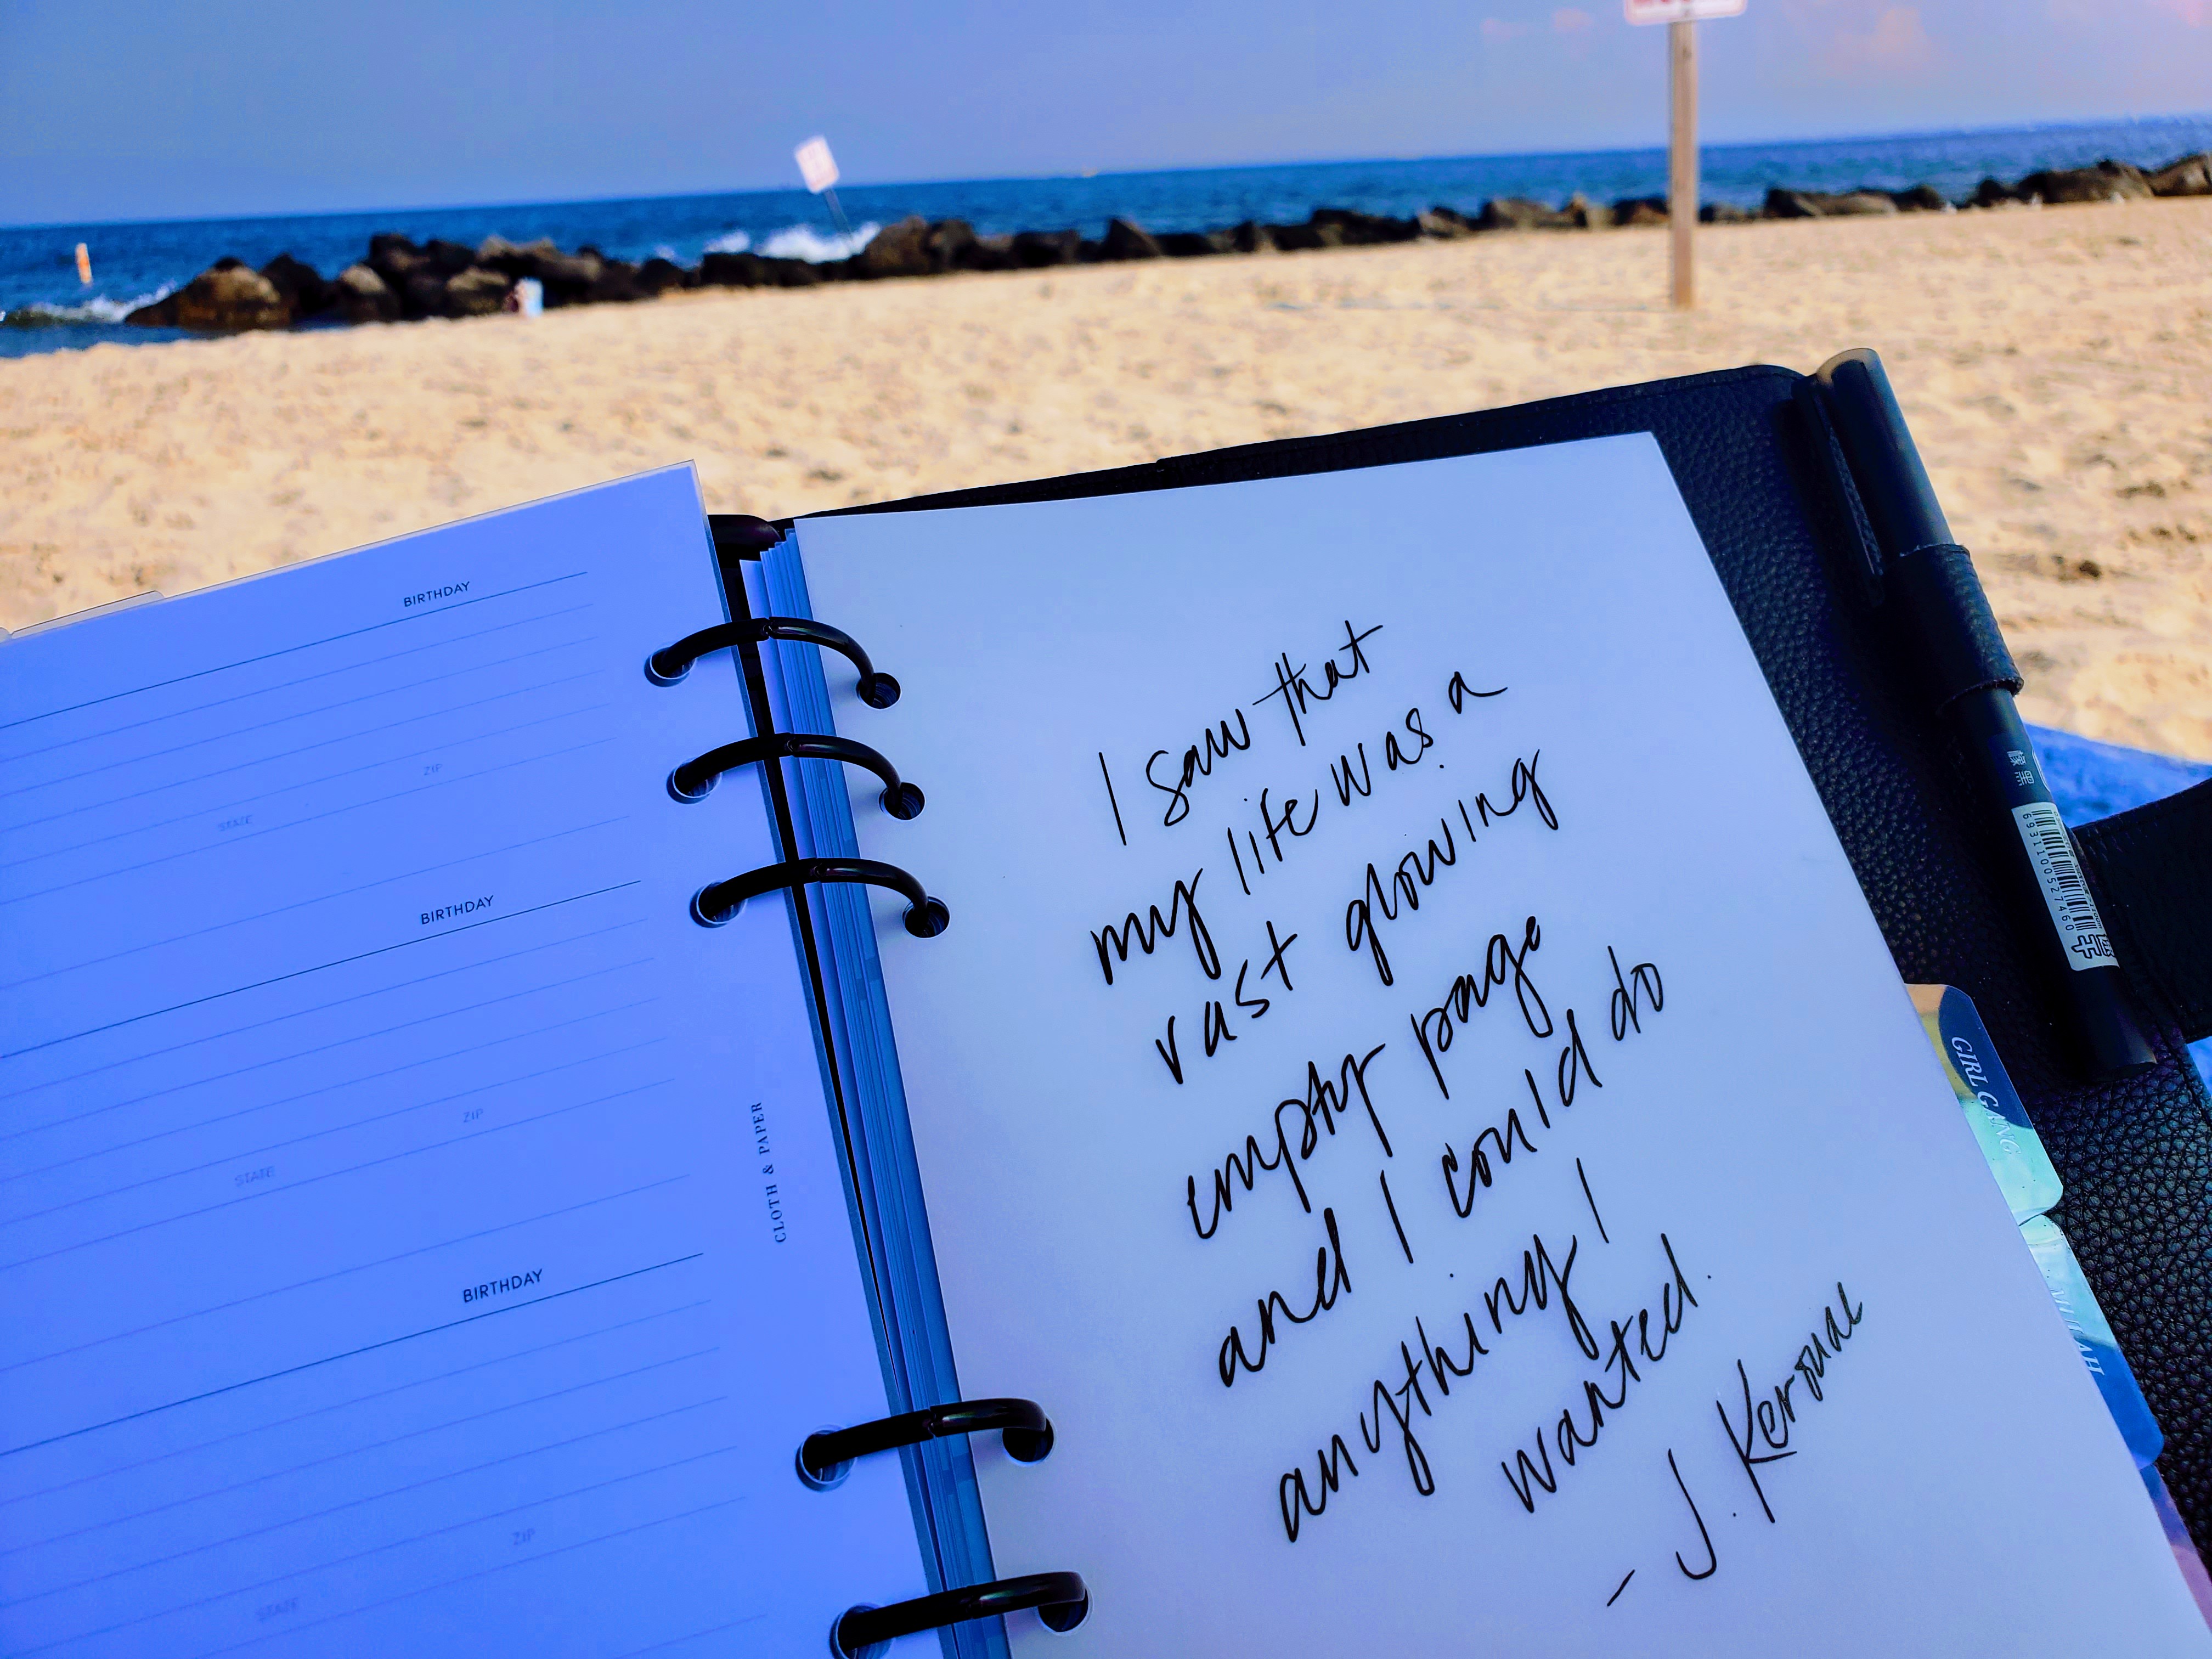 BIRTHDAY
ZIP
STATE
BIRTHDAY
ZIP
STATE
BIRTHDAY
ZIP
STATE
CLOTH & PAPER
I saw that
my life was a
vast glowing
empty page
and I could do
anything I
wanted.
- J. Kerouac
GIRL GANG
6931100527460